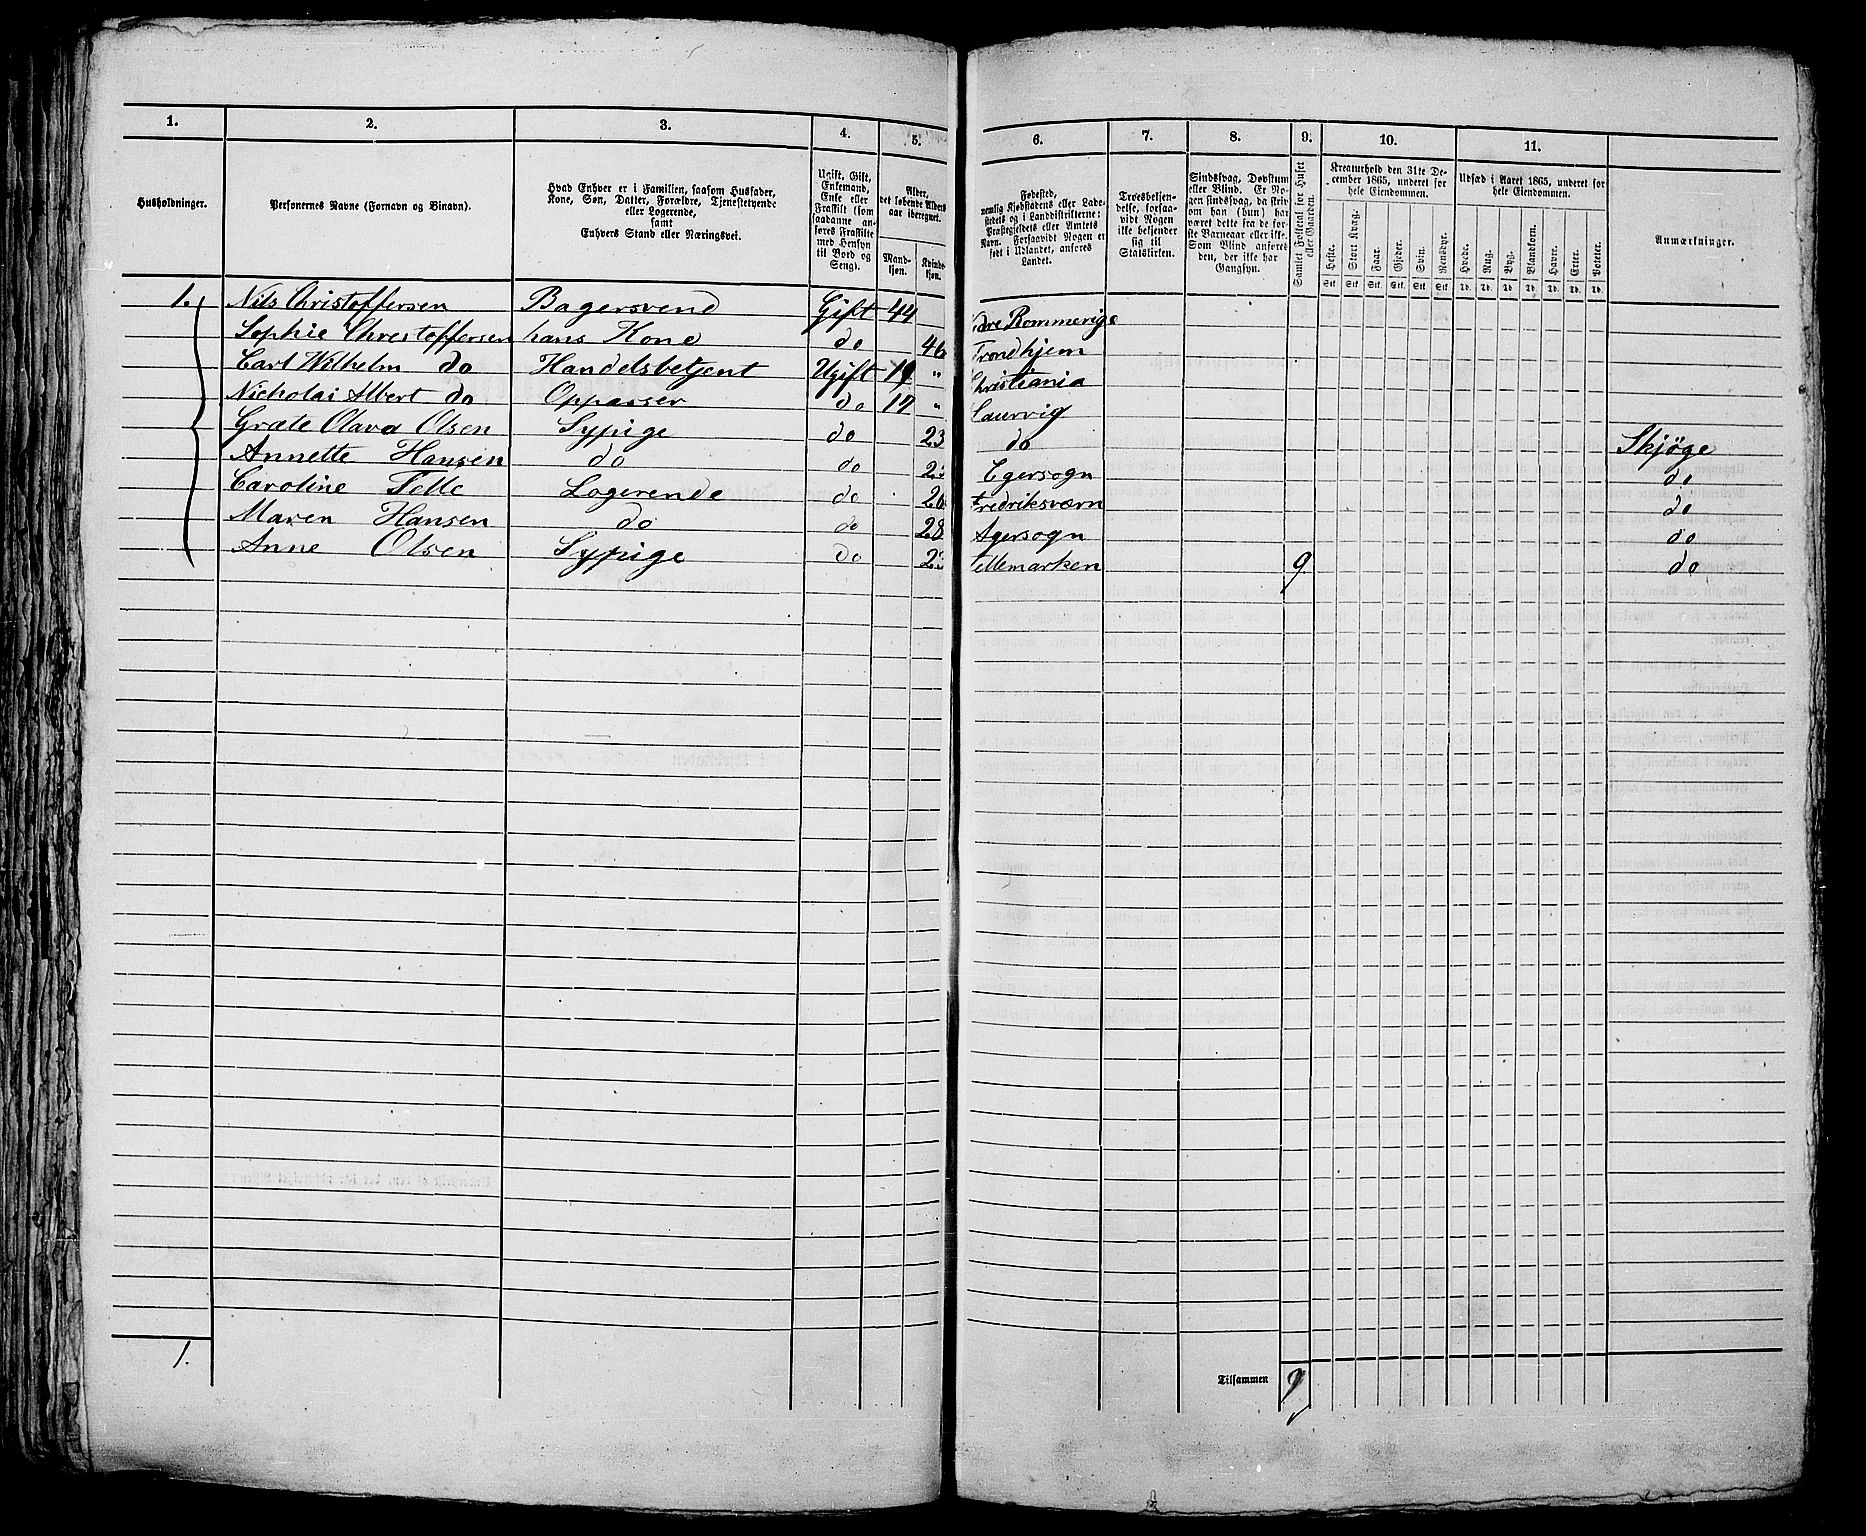 1. 2. 3. 4. 5. 6. 7. 8. 9. 10. 11.
Husholdninger.
Personernes Navne (Fornavn og Binavn).
Hvad Enhver er i Familien, saasom Husfader,
Kone, Søn, Datter, Forældre, Tjenestetyende
eller Logerende,
samt
Enhvers Stand eller Næringsvei.
Ugift, Gift,
Enkemand,
Enke eller
Fraskilt (som
saadanne an-
føres Fraskilte
med Hensyn
til Bord og
Seng).
Alder,
det løbende Alders-
aar iberegnet.
Mand-
kjøn.
Kvinde-
kjøn.
Fødested,
nemlig Kjøbstadens eller Lade-
stedets og i Landdistrikterne:
Præstegjeldets eller Amtets
Navn. Forsaavidt Nogen er
født i Udlandet, anføres
Landet.
Troesbekjen-
delse, forsaa-
vidt Nogen
ikke bekjender
sig til
Statskirken.
Sindssvag, Døvstum
eller Blind. Er No-
gen sindssvag, da skriv
om han (hun) har
været dette fra de før-
ste Barneaar eller ikke.
Som Blind anføres
den, der ikke har
Gangsyn.
Samlet Folketal for Huset
eller Gaarden.
Kreaturhold den 31te De-
cember 1865, underet for
hele Eiendommen.
Heste. Stort Kvæg. Faar. Gjeder. Svin. Rensdyr.
Stk. Stk. Stk. Stk. Stk. Stk.
Udsæd i Aaret 1865, underet for
hele Eiendommen.
Hvede. Rug. Byg. Blandkorn. Havre. Erter. Poteter.
Td. Td. Td. Td. Td. Td. Td.
Anmærkninger.
1. Nils Christoffersen Bagersvend Gift 44 Rommerige
Sophie Christoffersen hans Kone do 46 Trondhjem
Carl Wilhelm do Handelsbetjent Ugift 19 " Christiania
Nicholai Albert do Oppasser do 17 " Laurvig
Græte Olava Olsen Sypige do 23 do Skjøge
Annette Hansen do do Egersogn do
Caroline Felle Logerende do 26 Fredriksværn do
Maren Hansen do do 28 Agersogn do
Anne Olsen Sypige do Tellemarken 9. do
1.
Tilsammen 9